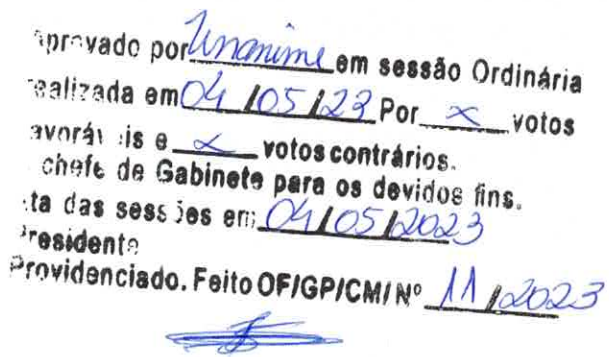 aprovado por Unanime em sessão Ordinária
realizada em 04/05/23 Por x votos
favoráveis e x votos contrários.
chefe de Gabinete para os devidos fins.
ta das sessões em 04/05/2023
Presidente
Providenciado. Feito OF/GP/CM/Nº 11/2023